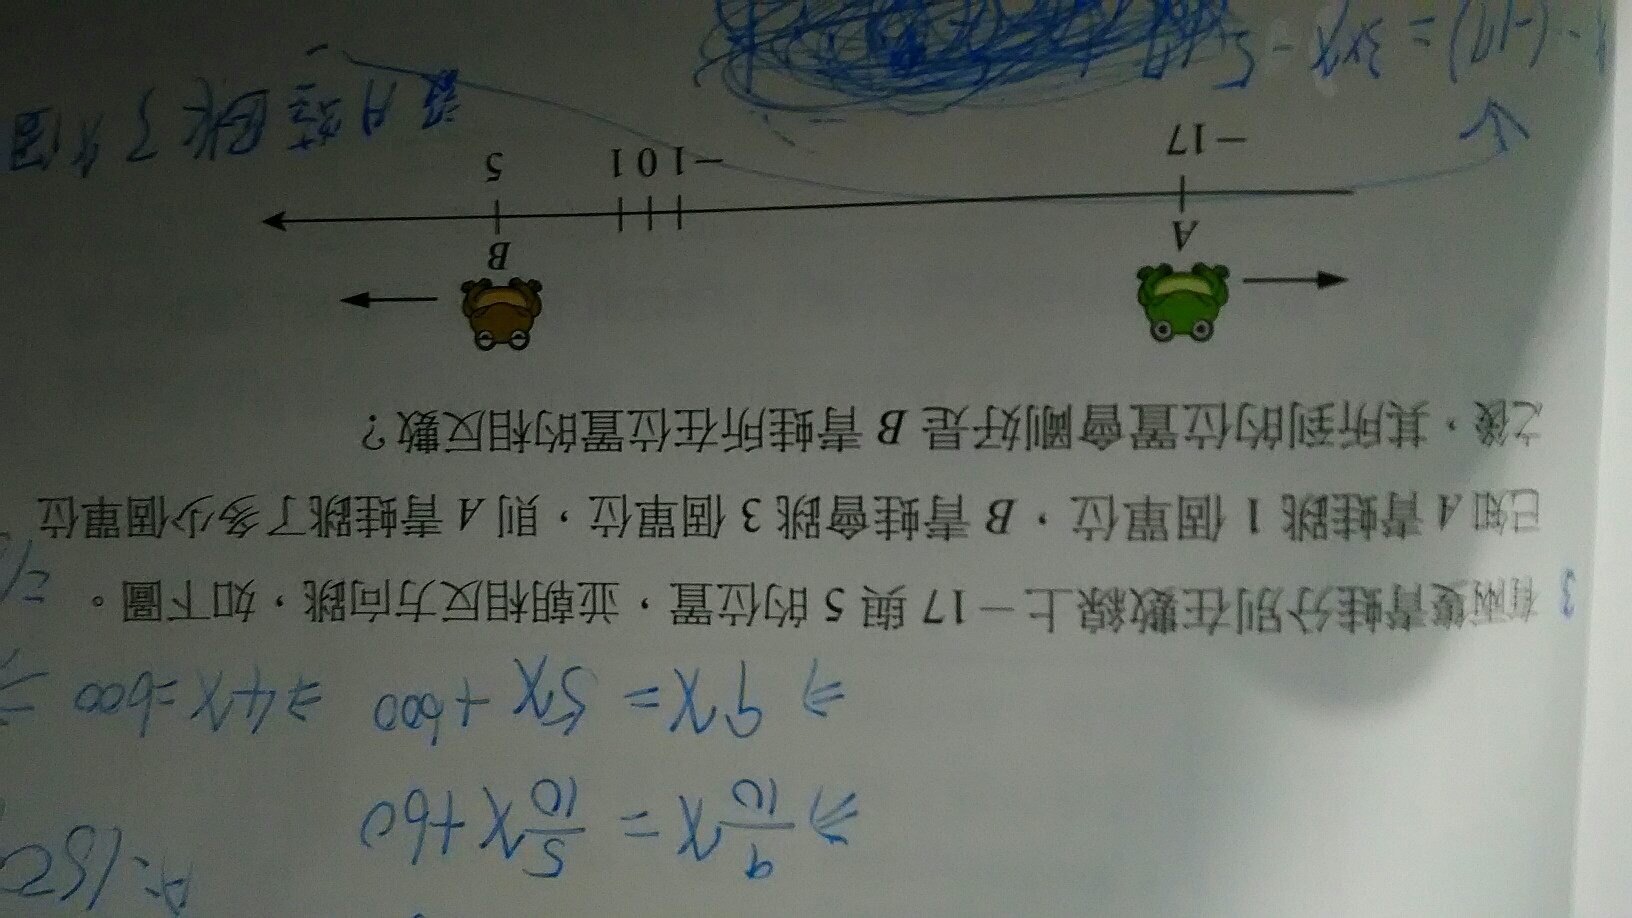 A:150
⇒ 9/10 X = 5/10 X + 60
⇒ 9X = 5X + 600 ⇒ 4X = 600
3 有兩隻青蛙分別在數線上-17與5的位置,並朝相反方向跳,如下圖。
已知A青蛙跳1個單位,B青蛙會跳3個單位,則A青蛙跳了多少個單位
之後,其所到的位置會剛好是B青蛙所在位置的相反數?
A B
-17 -1 0 1 5
設A蛙跳了x個